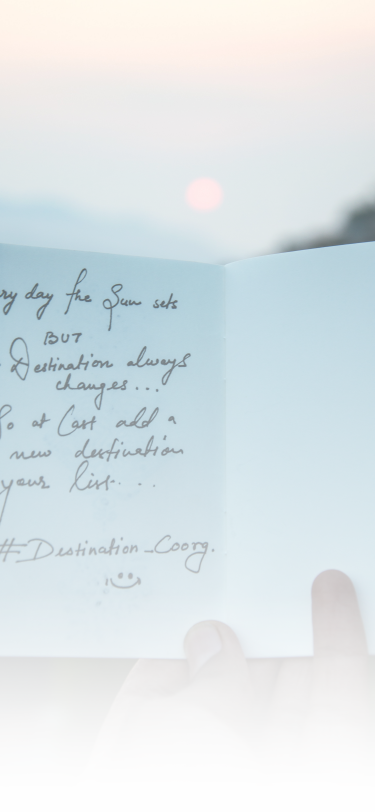 ry day the Sun sets
BUT
Destination always
changes...
So at Last add a
new destination
your list...
#Destination_Coorg.